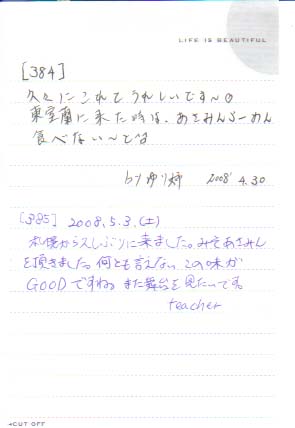 LIFE IS BEAUTIFUL
[384]
久々にこれてうれしいです〜♪
東室蘭に来た時は、あさみんらーめん
食べない〜とな
by ゆり姉 2008' 4.30
[385] 2008.5.3.(土)
札幌から久しぶりに来ました。みそあさみん
を頂きました。何とも言えない この味が
GOODですね。また舞台を見たいです。
teacher
CUT OFF